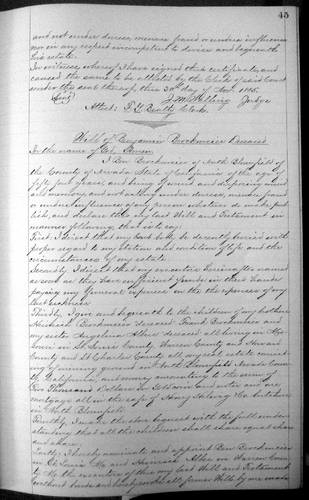 45
and not under duress, menace fraud or undue influence
nor in any respect incompetent to devise and bequeath
his estate.
In witness whereof I have signed this certificate, and
caused the same to be attested by the Clerk of said Court
under the seal thereof this 30th day of Nov. 1885.
Judge
Attest: Clerk
Will of Benjamin Brockmeier Deceased
In the name of God, Amen.
I Ben Brockmeier of North Bloomfield of
the County of Nevada State of California of the age of
fifty four years, and being of sound and disposing mind
and memory, and not acting under duress, menace, fraud
or undue influence of any person whatever do make pub-
lish, and declare this my last Will and Testament in
manner following, that is to say:
First, I direct that my body be decently buried with
proper regard to my station and condition of life and the
circumstances of my estate.
Secondly, I direct that my executors hereinafter named
as soon as they have sufficient funds in their hands
paying my funeral expenses and the expenses of my
last sickness.
Thirdly, I give and bequeath to the children of my brothers
Brockmeier deceased, Frank Brockmeier and
my sister Angelina Allen deceased all living in Mis-
souri in St Louis County Warren County and Howard
County and St Charles County all my real estate consist-
ing of mining ground in North Bloomfield Nevada Coun-
ty California, and money amounting to the sum of
Thousand Dollars in Gold coin and notes and one
mortgage all in the safe of the butcher
in North Bloomfield.
Fourthly, I make the above bequest with the full under-
standing that all the children shall share equal share
and share.
Lastly, I hereby nominate and appoint Ben Brockmeier
in St Louis Mo and Allen in Warren County
Mo the executors of this my last Will and Testament
without bonds and hereby revoke all former Wills by me made